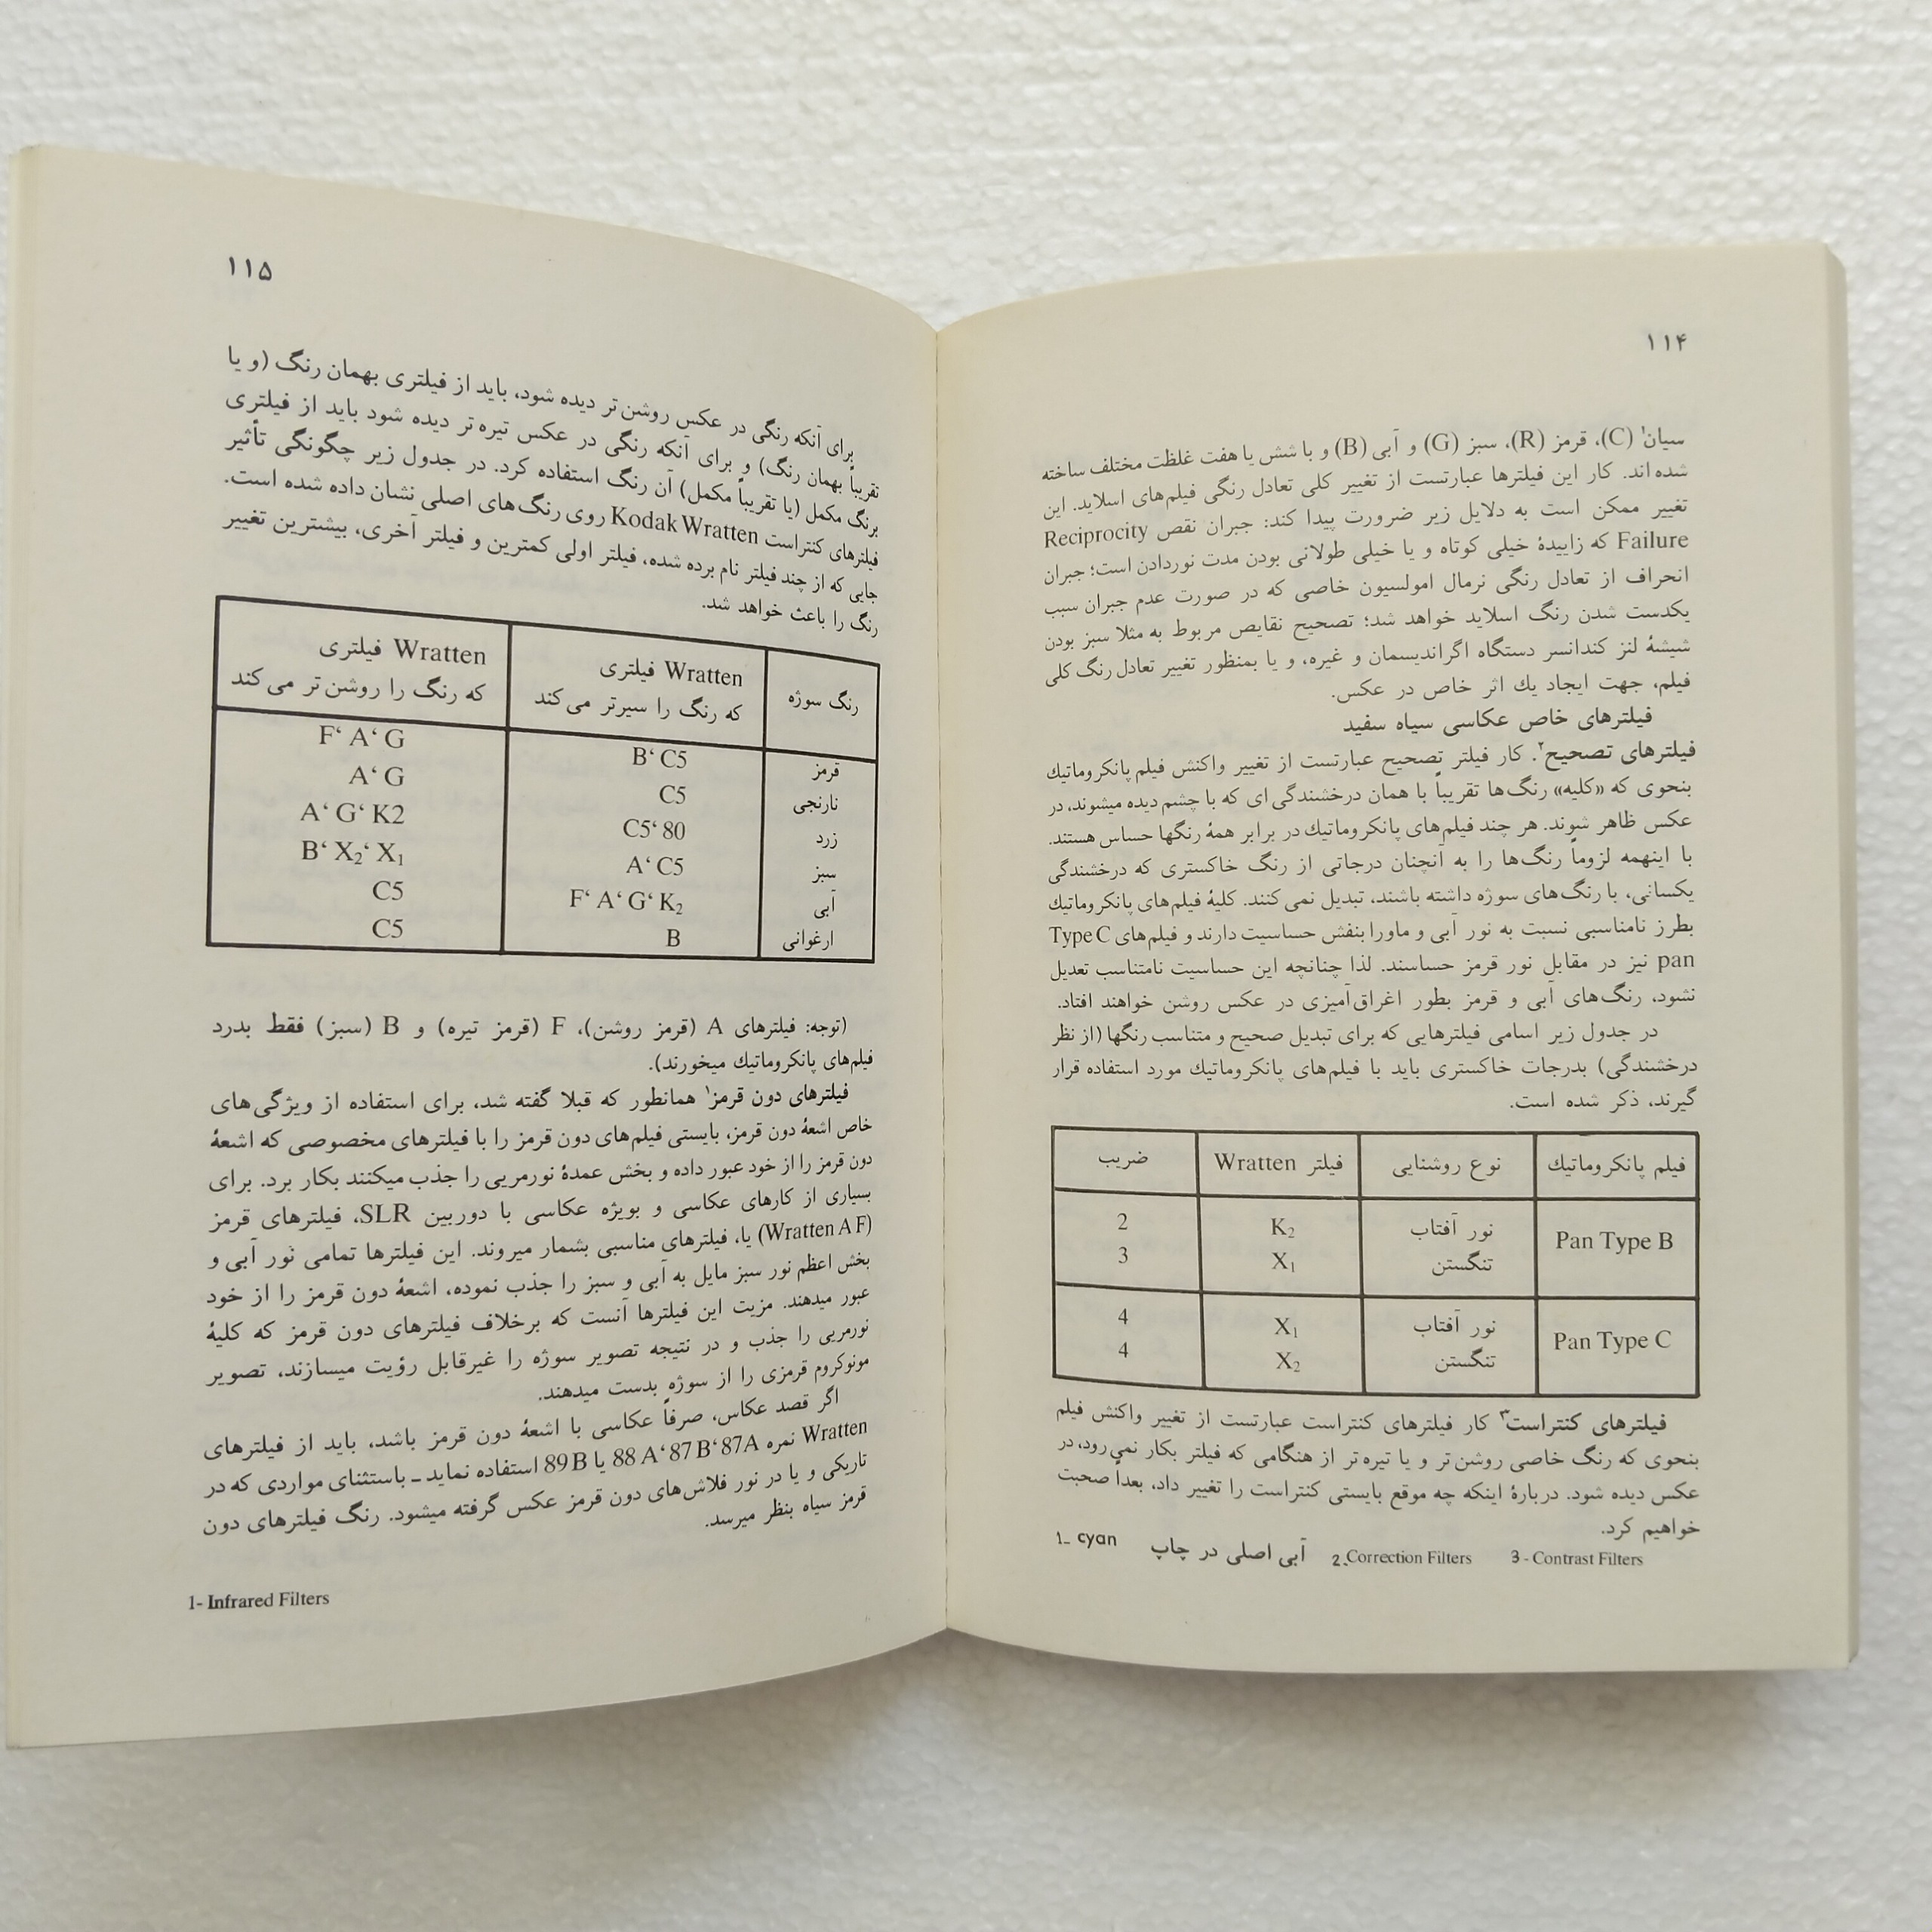 ۱۱۴
سیان۱ (C)، قرمز (R)، سبز (G) و آبی (B) و با شش یا هفت غلظت مختلف ساخته
شده‌اند. کار این فیلترها عبارتست از تغییر کلی تعادل رنگی فیلم‌های اسلاید. این
تغییر ممکن است به دلایل زیر ضرورت پیدا کند: جبران نقص Reciprocity
Failure که زاییدهٔ خیلی کوتاه و یا خیلی طولانی بودن مدت نوردادن است؛ جبران
انحراف از تعادل رنگی نرمال امولسیون خاصی که در صورت عدم جبران سبب
یکدست شدن رنگ اسلاید خواهد شد؛ تصحیح نقایص مربوط به مثلا سبز بودن
شیشهٔ لنز کندانسر دستگاه اگراندیسمان و غیره، و یا بمنظور تغییر تعادل رنگ کلی
فیلم، جهت ایجاد یك اثر خاص در عکس.
فیلترهای خاص عکاسی سیاه سفید
فیلترهای تصحیح۲. کار فیلتر تصحیح عبارتست از تغییر واکنش فیلم پانکروماتیك
بنحوی که «کلیه» رنگ‌ها تقریباً با همان درخشندگی‌ای که با چشم دیده میشوند، در
عکس ظاهر شوند. هر چند فیلم‌های پانکروماتیك در برابر همهٔ رنگها حساس هستند.
با اینهمه لزوماً رنگ‌ها را به آنچنان درجاتی از رنگ خاکستری که درخشندگی
یکسانی، با رنگ‌های سوژه داشته باشند، تبدیل نمی‌کنند. کلیهٔ فیلم‌های پانکروماتیك
بطرز نامناسبی نسبت به نور آبی و ماورا بنفش حساسیت دارند و فیلم‌های Type C
pan نیز در مقابل نور قرمز حساسند. لذا چنانچه این حساسیت نامتناسب تعدیل
نشود، رنگ‌های آبی و قرمز بطور اغراق‌آمیزی در عکس روشن خواهند افتاد.
در جدول زیر اسامی فیلترهایی که برای تبدیل صحیح و متناسب رنگها (از نظر
درخشندگی) بدرجات خاکستری باید با فیلم‌های پانکروماتیك مورد استفاده قرار
گیرند، ذکر شده است.
فیلم پانکروماتیك نوع روشنایی فیلتر Wratten ضریب
Pan Type B نور آفتاب K2 2
تنگستن X1 3
Pan Type C نور آفتاب X1 4
تنگستن X2 4
فیلترهای کنتراست۳ کار فیلترهای کنتراست عبارتست از تغییر واکنش فیلم
بنحوی که رنگ خاصی روشن‌تر و یا تیره‌تر از هنگامی که فیلتر بکار نمی‌رود، در
عکس دیده شود. دربارهٔ اینکه چه موقع بایستی کنتراست را تغییر داد، بعداً صحبت
خواهیم کرد.
1- cyan آبی اصلی در چاپ 2-Correction Filters 3 - Contrast Filters
۱۱۵
برای آنکه رنگی در عکس روشن‌تر دیده شود، باید از فیلتری بهمان رنگ (و یا
تقریباً بهمان رنگ) و برای آنکه رنگی در عکس تیره‌تر دیده شود باید از فیلتری
برنگ مکمل (یا تقریباً مکمل) آن رنگ استفاده کرد. در جدول زیر چگونگی تأثیر
فیلترهای کنتراست Kodak Wratten روی رنگ‌های اصلی نشان داده شده است.
جایی که از چند فیلتر نام برده شده، فیلتر اولی کمترین و فیلتر آخری، بیشترین تغییر
رنگ را باعث خواهد شد.
رنگ سوژه Wratten فیلتری Wratten فیلتری
که رنگ را سیرتر می‌کند که رنگ را روشن‌تر می‌کند
قرمز B‘ C5 F‘ A‘ G
نارنجی C5 A‘ G
زرد C5‘ 80 A‘ G‘ K2
سبز A‘ C5 B‘ X2‘ X1
آبی F‘ A‘ G‘ K2 C5
ارغوانی B C5
(توجه: فیلترهای A (قرمز روشن)، F (قرمز تیره) و B (سبز) فقط بدرد
فیلم‌های پانکروماتیك میخورند).
فیلترهای دون قرمز۱ همانطور که قبلا گفته شد، برای استفاده از ویژگی‌های
خاص اشعهٔ دون قرمز، بایستی فیلم‌های دون قرمز را با فیلترهای مخصوصی که اشعهٔ
دون قرمز را از خود عبور داده و بخش عمدهٔ نورمریی را جذب میکنند بکار برد. برای
بسیاری از کارهای عکاسی و بویژه عکاسی با دوربین SLR، فیلترهای قرمز
(Wratten A F) یا، فیلترهای مناسبی بشمار میروند. این فیلترها تمامی نور آبی و
بخش اعظم نور سبز مایل به آبی و سبز را جذب نموده، اشعهٔ دون قرمز را از خود
عبور میدهند. مزیت این فیلترها آنست که برخلاف فیلترهای دون قرمز که کلیهٔ
نورمریی را جذب و در نتیجه تصویر سوژه را غیرقابل رؤیت میسازند، تصویر
مونوکروم قرمزی را از سوژه بدست میدهند.
اگر قصد عکاس، صرفاً عکاسی با اشعهٔ دون قرمز باشد، باید از فیلترهای
Wratten نمره 87A‘ 87 B‘ 88 A یا 89 B استفاده نماید ــ باستثنای مواردی که در
تاریکی و یا در نور فلاش‌های دون قرمز عکس گرفته میشود. رنگ فیلترهای دون
قرمز سیاه بنظر میرسد.
1- Infrared Filters